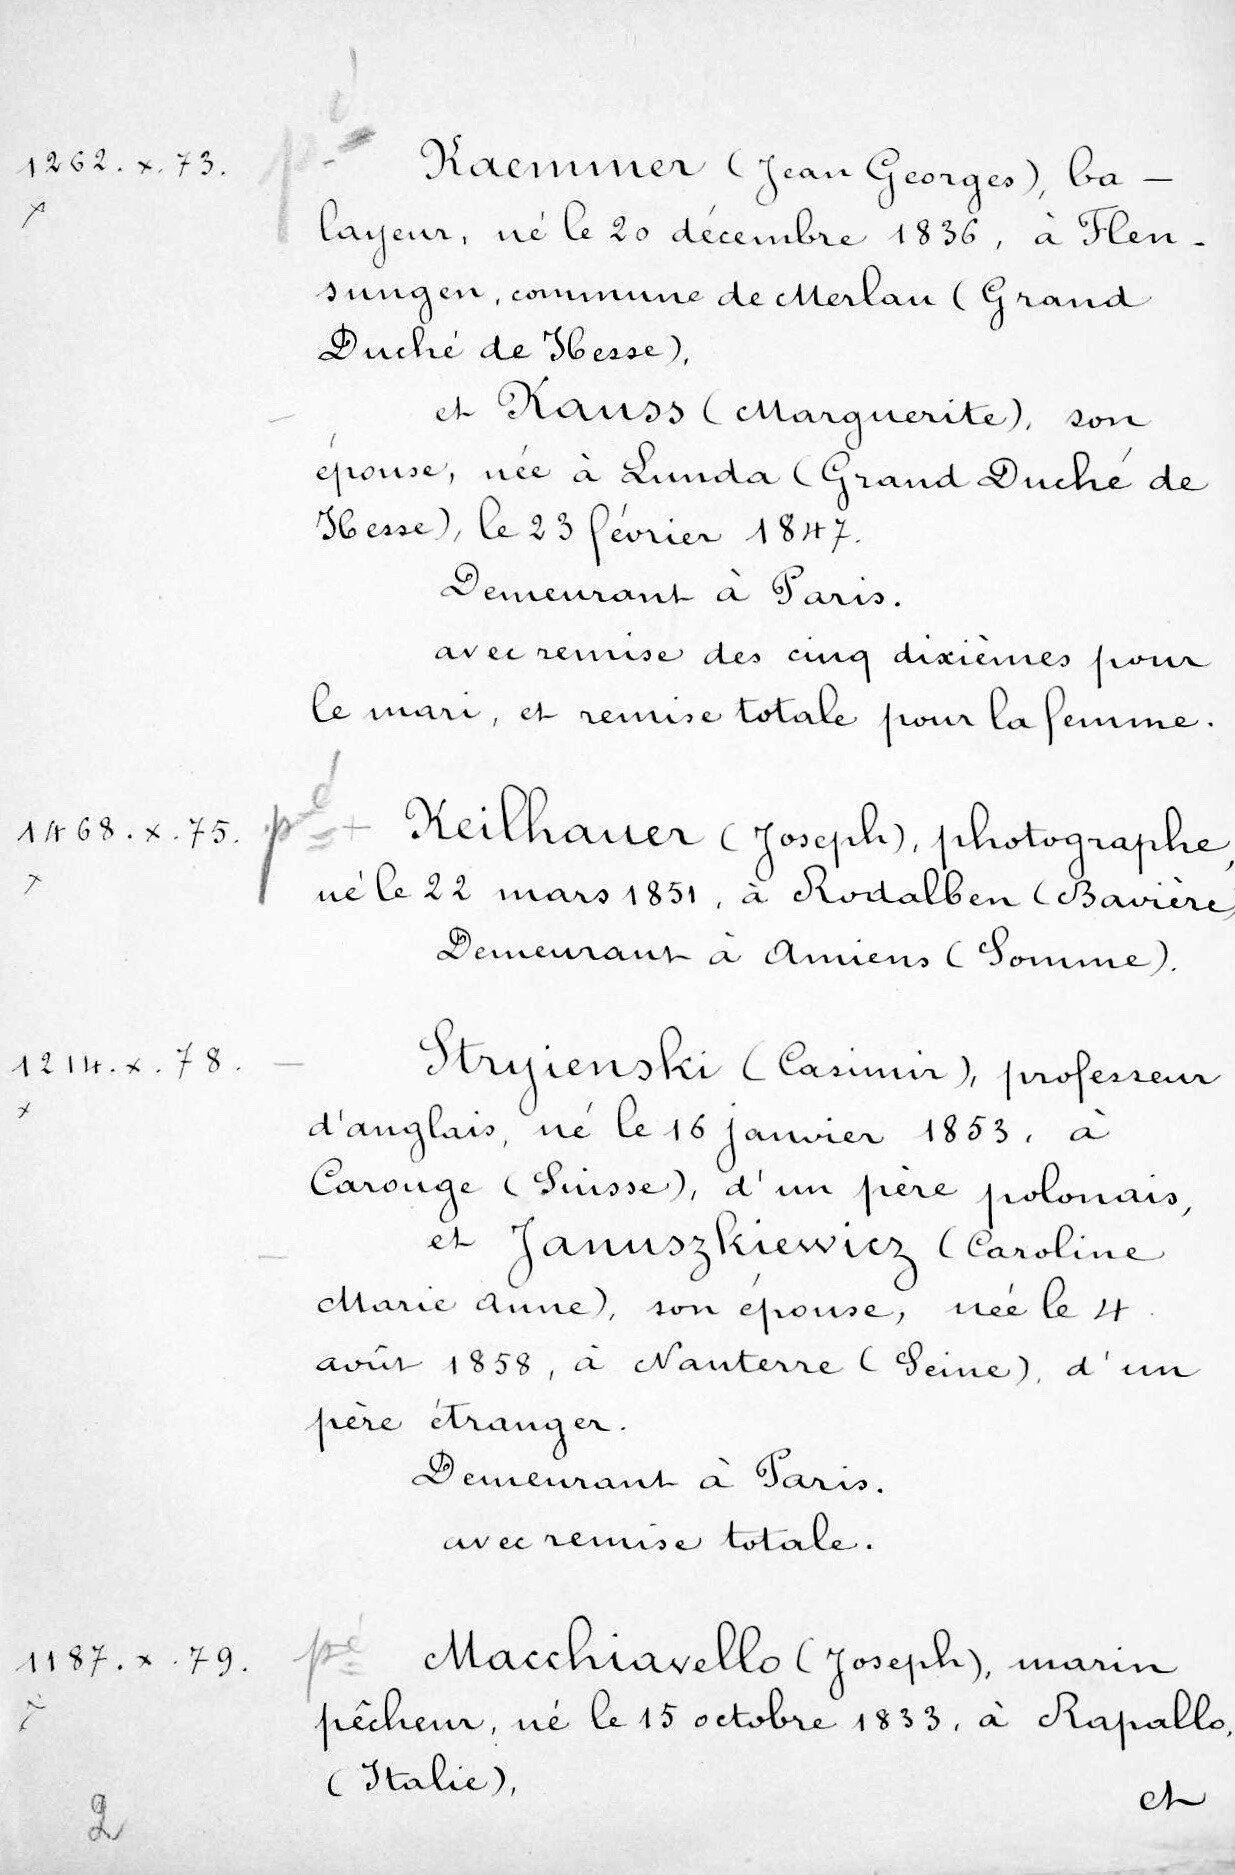 1262. x. 73. pé Kaemmer (Jean Georges), ba-
x layeur, né le 20 décembre 1836, à Flen-
sungen, commune de Merlau (Grand
Duché de Hesse),
et Kauss (Marguerite), son
épouse, née à Lunda (Grand Duché de
Hesse), le 23 février 1847.
Demeurant à Paris.
avec remise des cinq dixièmes pour
le mari, et remise totale pour la femme.
1468. x. 75. pé + Keilhauer (Joseph), photographe,
x né le 22 mars 1851, à Rodalben (Bavière)
Demeurant à Amiens (Somme).
1214. x. 78. — Stryienski (Casimir), professeur
x d'anglais, né le 16 janvier 1853, à
Carouge (Suisse), d'un père polonais,
— et Januszkiewicz (Caroline
Marie Anne), son épouse, née le 4
août 1858, à Nanterre (Seine), d'un
père étranger.
Demeurant à Paris.
avec remise totale.
1187. x. 79. pé Macchiavello (Joseph), marin
x pêcheur, né le 15 octobre 1833, à Rapallo,
(Italie),
2 et